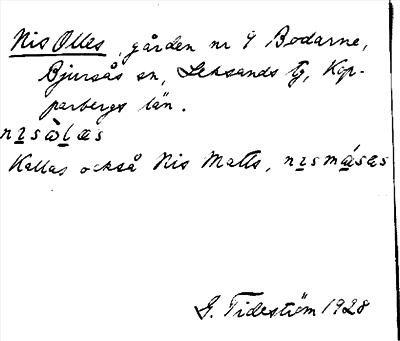 Nis Olles, gården nr 9 Bodarne,
Bjursås sn, Leksands tg, Kop-
parbergs län.
nɪsὼlæs
Kallas också Nis Matts, nɪsmásæs
G. Tideström 1928